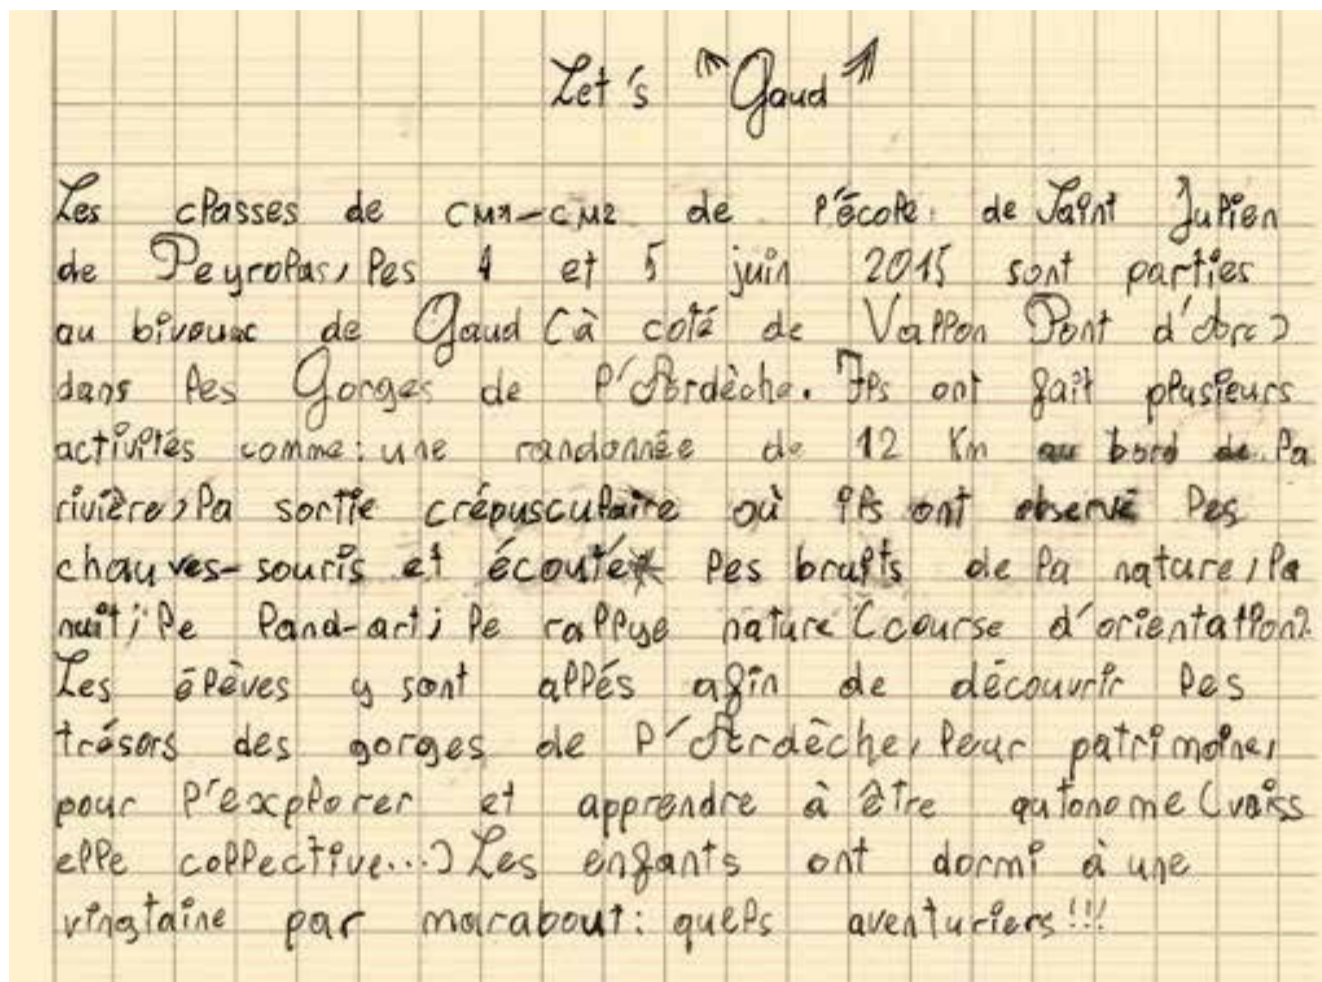 Let's "Gaud"
Les classes de CM1-CM2 de l'école de Saint Julien
de Peyrolas, les 4 et 5 juin 2015 sont parties
au bivouac de Gaud (à coté de Vallon Pont d'Arc)
dans les Gorges de l'Ardèche. Ils ont fait plusieurs
activités comme : une randonnée de 12 Km au bord de la
rivière, la sortie crépusculaire où ils ont observé les
chauves-souris et écouté les bruits de la nature, la
nuit ; le land-art ; le rallye nature (course d'orientation).
Les élèves y sont allés afin de découvrir les
trésors des gorges de l'Ardèche, leur patrimoine,
pour l'explorer et apprendre à être autonome (vaiss
elle collective...) Les enfants ont dormi à une
vingtaine par marabout : quels aventuriers !!!